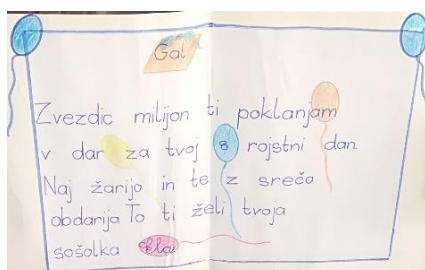 Gal
Zvezdic milijon ti poklanjam
v dar za tvoj 8 rojstni dan
Naj žarijo in te z srečo
obdarija To ti želi tvoja
sošolka